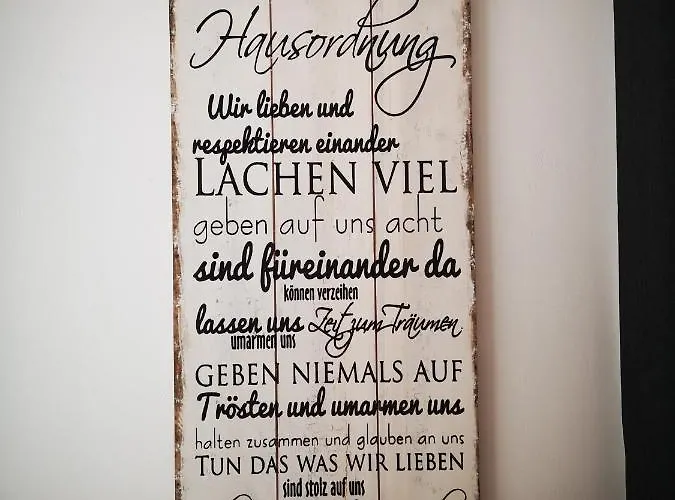 Hausordnung
Wir lieben und
respektieren einander
LACHEN VIEL
geben auf uns acht
sind füreinander da
können verzeihen
lassen uns Zeit zum Träumen
umarmen uns
GEBEN NIEMALS AUF
Trösten und umarmen uns
halten zusammen und glauben an uns
TUN DAS WAS WIR LIEBEN
sind stolz auf uns